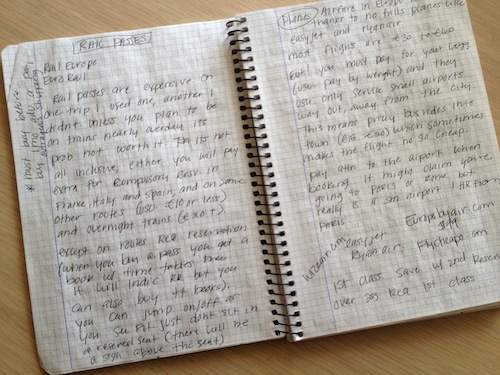 RAIL PASSES
Rail Europe
Euro Rail
Rail passes are expensive on
one trip I used one, another I
didnt unless you plan to be
on trains nearly everyday its
prob not worth it. its not
all inclusive, either you will pay
extra for compulsory Resr. in
France, italy and spain, and on some
other routes (€10 or less)
and overnight trains (€20+)
except on routes reservation
(when you buy a pass you get a
book w/ time tables
it will indic RR but you
can also buy books).
you can jump on/off as
you see fit just dont sit in
a reserved seat (there will be
a sign above the seat)
* must buy before
Planes Airfare in Europe
thanks to no frills planes like
easyjet and ryanair.
most flights are €30
but you must pay for your
(usu pay by weight) and they
usu only service small airports
way out, away from the city.
This means pricy bus rides into
town which sometimes
makes the flight no so cheap.
pay attn to the airport when
booking it might claim you're
going to paris or rome but
really is a sm airport 1 HR from
PARIS.
easyjet Europebyair.com
Ryan air.
1st class save w/ 2nd Reserv
over 26 1st class